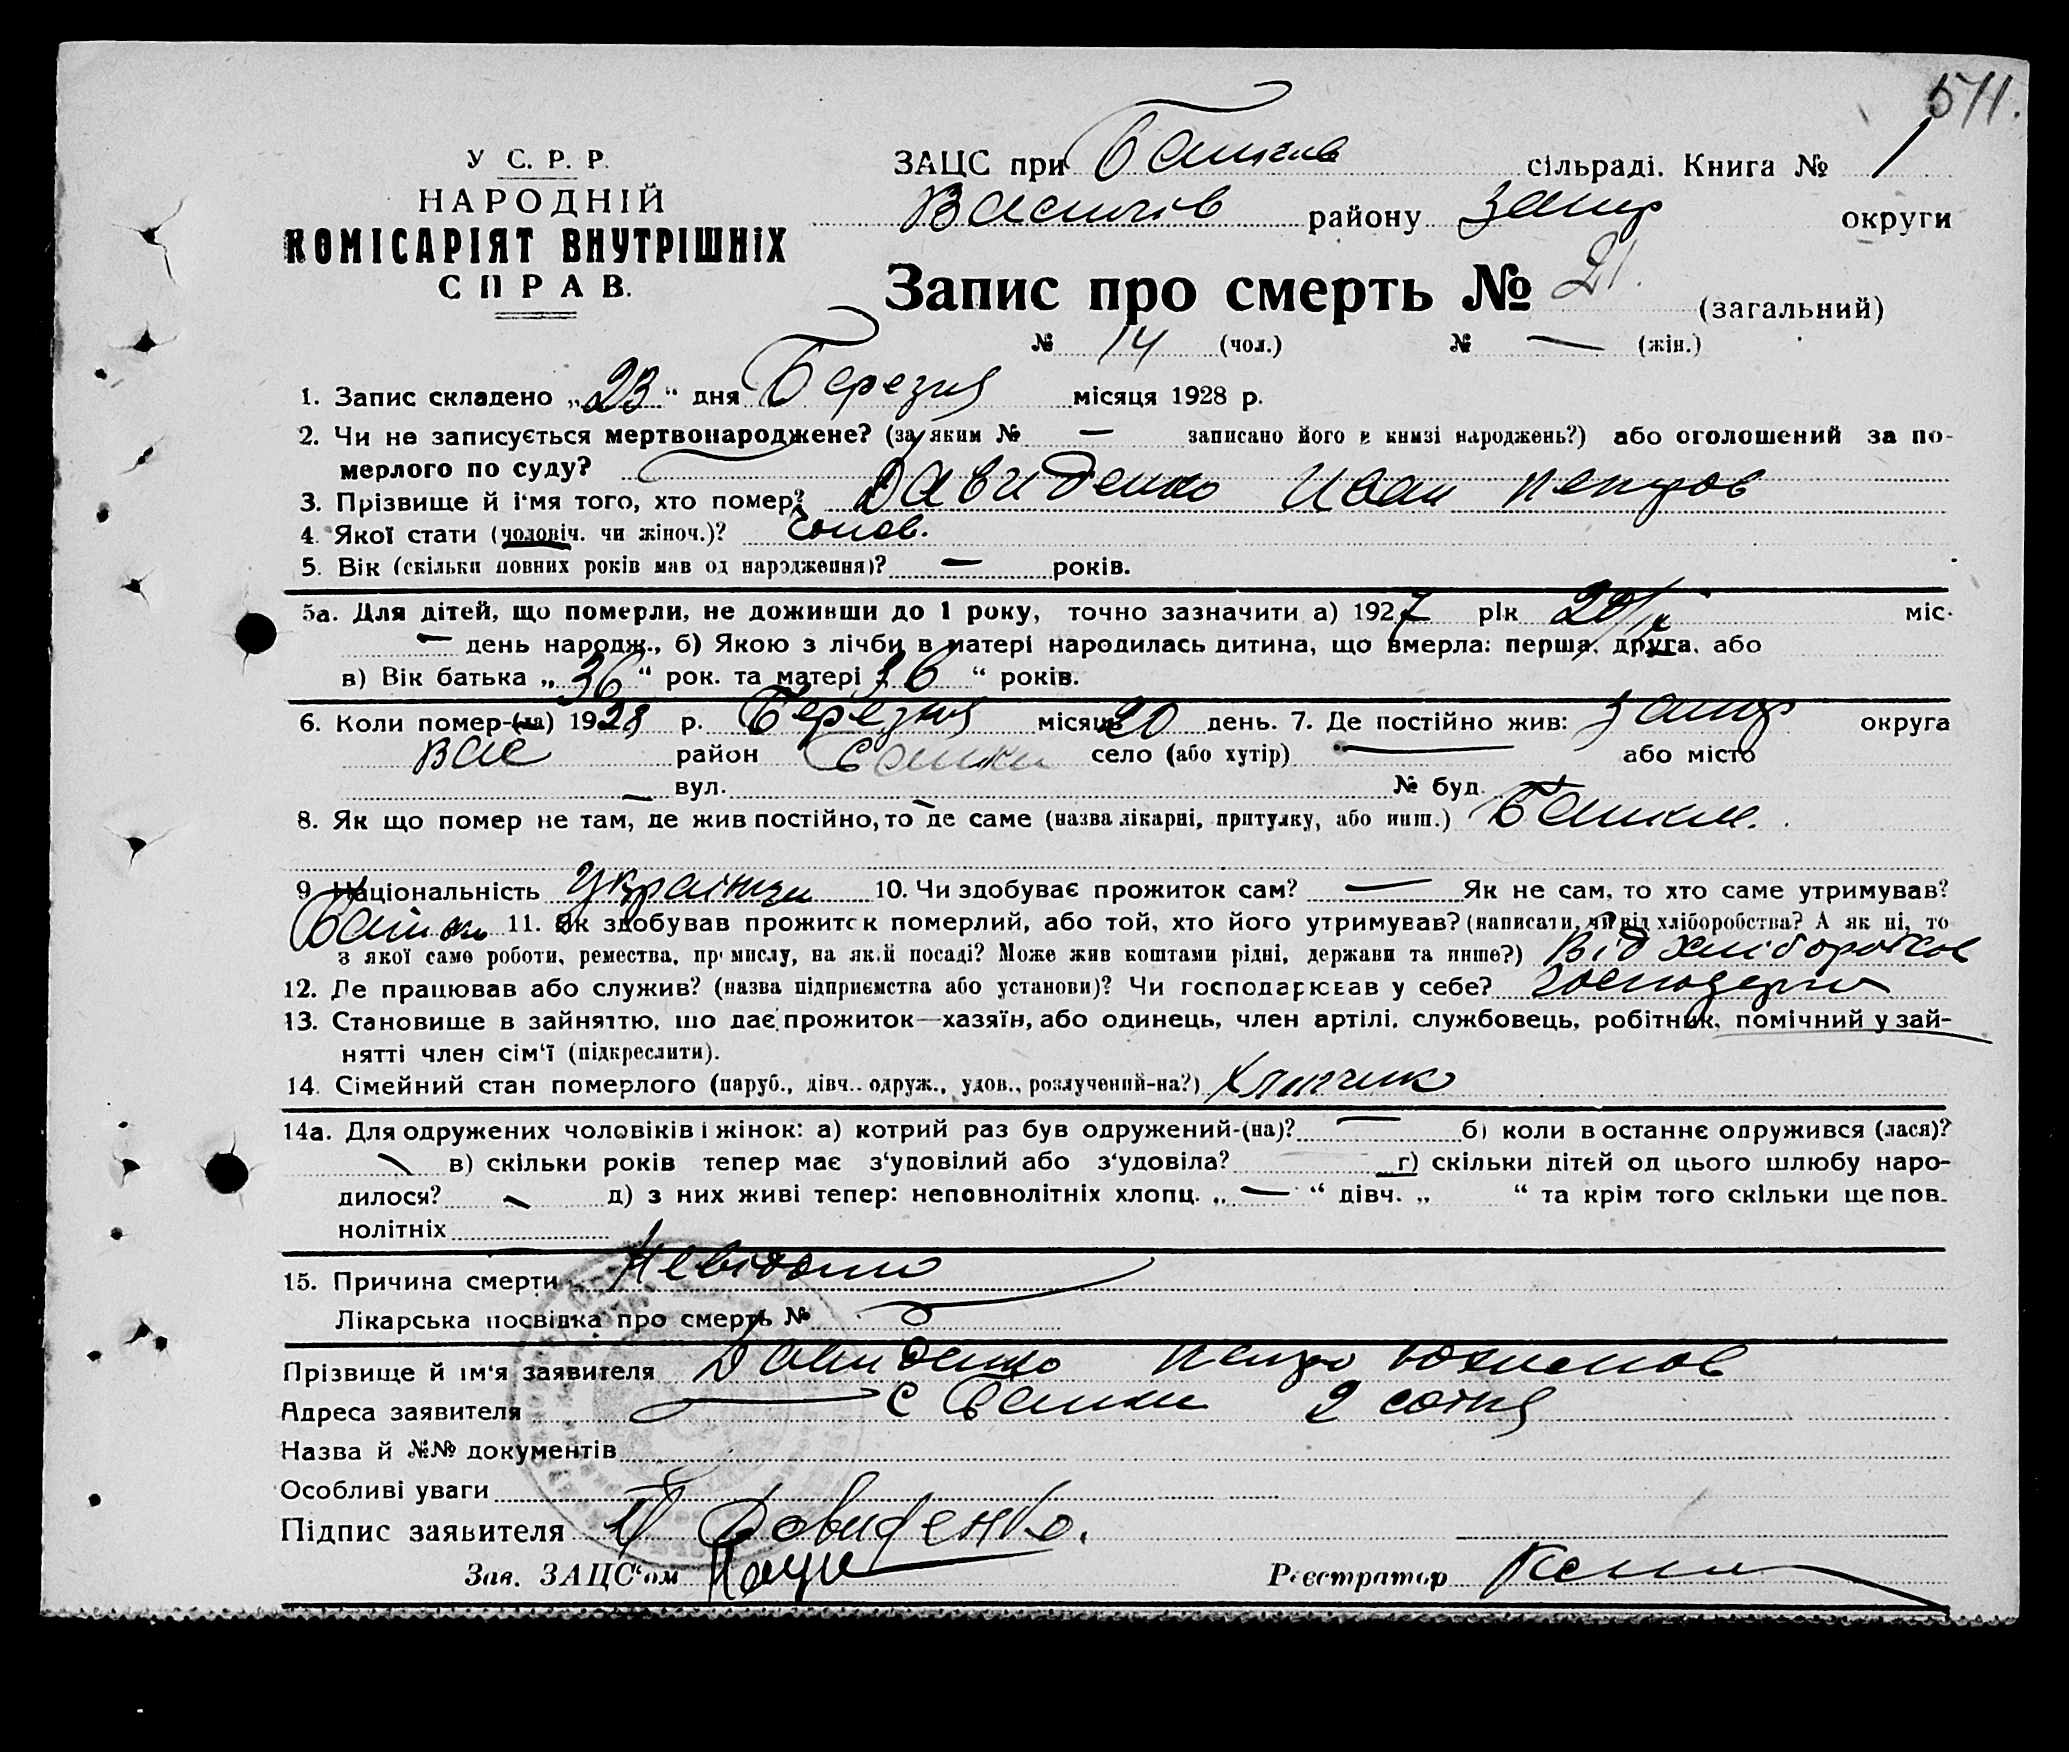 511.
У С. Р. Р.
НАРОДНІЙ
КОМІСАРІЯТ ВНУТРІШНІХ
СПРАВ.
ЗАЦС при сільраді. Книга № 1
району Запор округи
Запис про смерть № 21. (загальний)
№ 14 (чол.) № — (жін.)
1. Запис складено „23“ дня Березня місяця 1928 р.
2. Чи не записується мертвонароджене? (за яким № — записано його в книзі народжень?) або оголошений за по-
мерлого по суду?
3. Прізвище й і'мя того, хто помер? Давиденко Иван Петров
4. Якої стати (чоловіч. чи жіноч.)? чолов.
5. Вік (скільки повних років мав од народження)? — років.
5а. Для дітей, що померли, не доживши до 1 року, точно зазначити а) 1927 рік міс.
— день народж., б) Якою з лічби в матері народилась дитина, що вмерла: перша, друга, або
в) Вік батька „36“ рок. та матері 36 “ років.
6. Коли помер-(ла) 1928 р. Березня місяць 20 день. 7. Де постійно жив: Запор округа
Вас район Башки село (або хутір) — або місто
— вул. № буд.
8. Як що помер не там, де жив постійно, то де саме (назва лікарні, притулку, або инш.) Башки.
9. Національність українец 10. Чи здобуває прожиток сам? — Як не сам, то хто саме утримував?
Батько 11. Як здобував прожиток померлий, або той, хто його утримував? (написати, чи від хліборобства? А як ні, то
з якої саме роботи, ремества, промислу, на якій посаді? Може жив коштами рідні, держави та инше?) Від хліборобсов
12. Де працював або служив? (назва підприємства або установи)? Чи господарював у себе?
13. Становище в зайняттю, що дає прожиток—хазяїн, або одинець, член артілі, службовець, робітник, помічний у зай-
нятті член сім'ї (підкреслити).
14. Сімейний стан померлого (паруб., дівч.. одруж., удов., розлучений-на?) Хлопчик
14а. Для одружених чоловіків і жінок: а) котрий раз був одружений-(на)? — б) коли востаннє одружився (лася)?
в) скільки років тепер має з'удовілий або з'удовіла? г) скільки дітей од цього шлюбу наро-
дилося? д) з них живі тепер: неповнолітніх хлопц. „—“ дівч. „ “ та крім того скільки ще пов-
нолітніх
15. Причина смерти Невідомо
Лікарська посвідка про смерть №
Прізвище й ім'я заявителя Давиденко Петро
Адреса заявителя с Башки 2 сотня
Назва й №№ документів
Особливі уваги
Підпис заявителя П Довиденко.
Зав. ЗАЦС'ом
Реєстратор